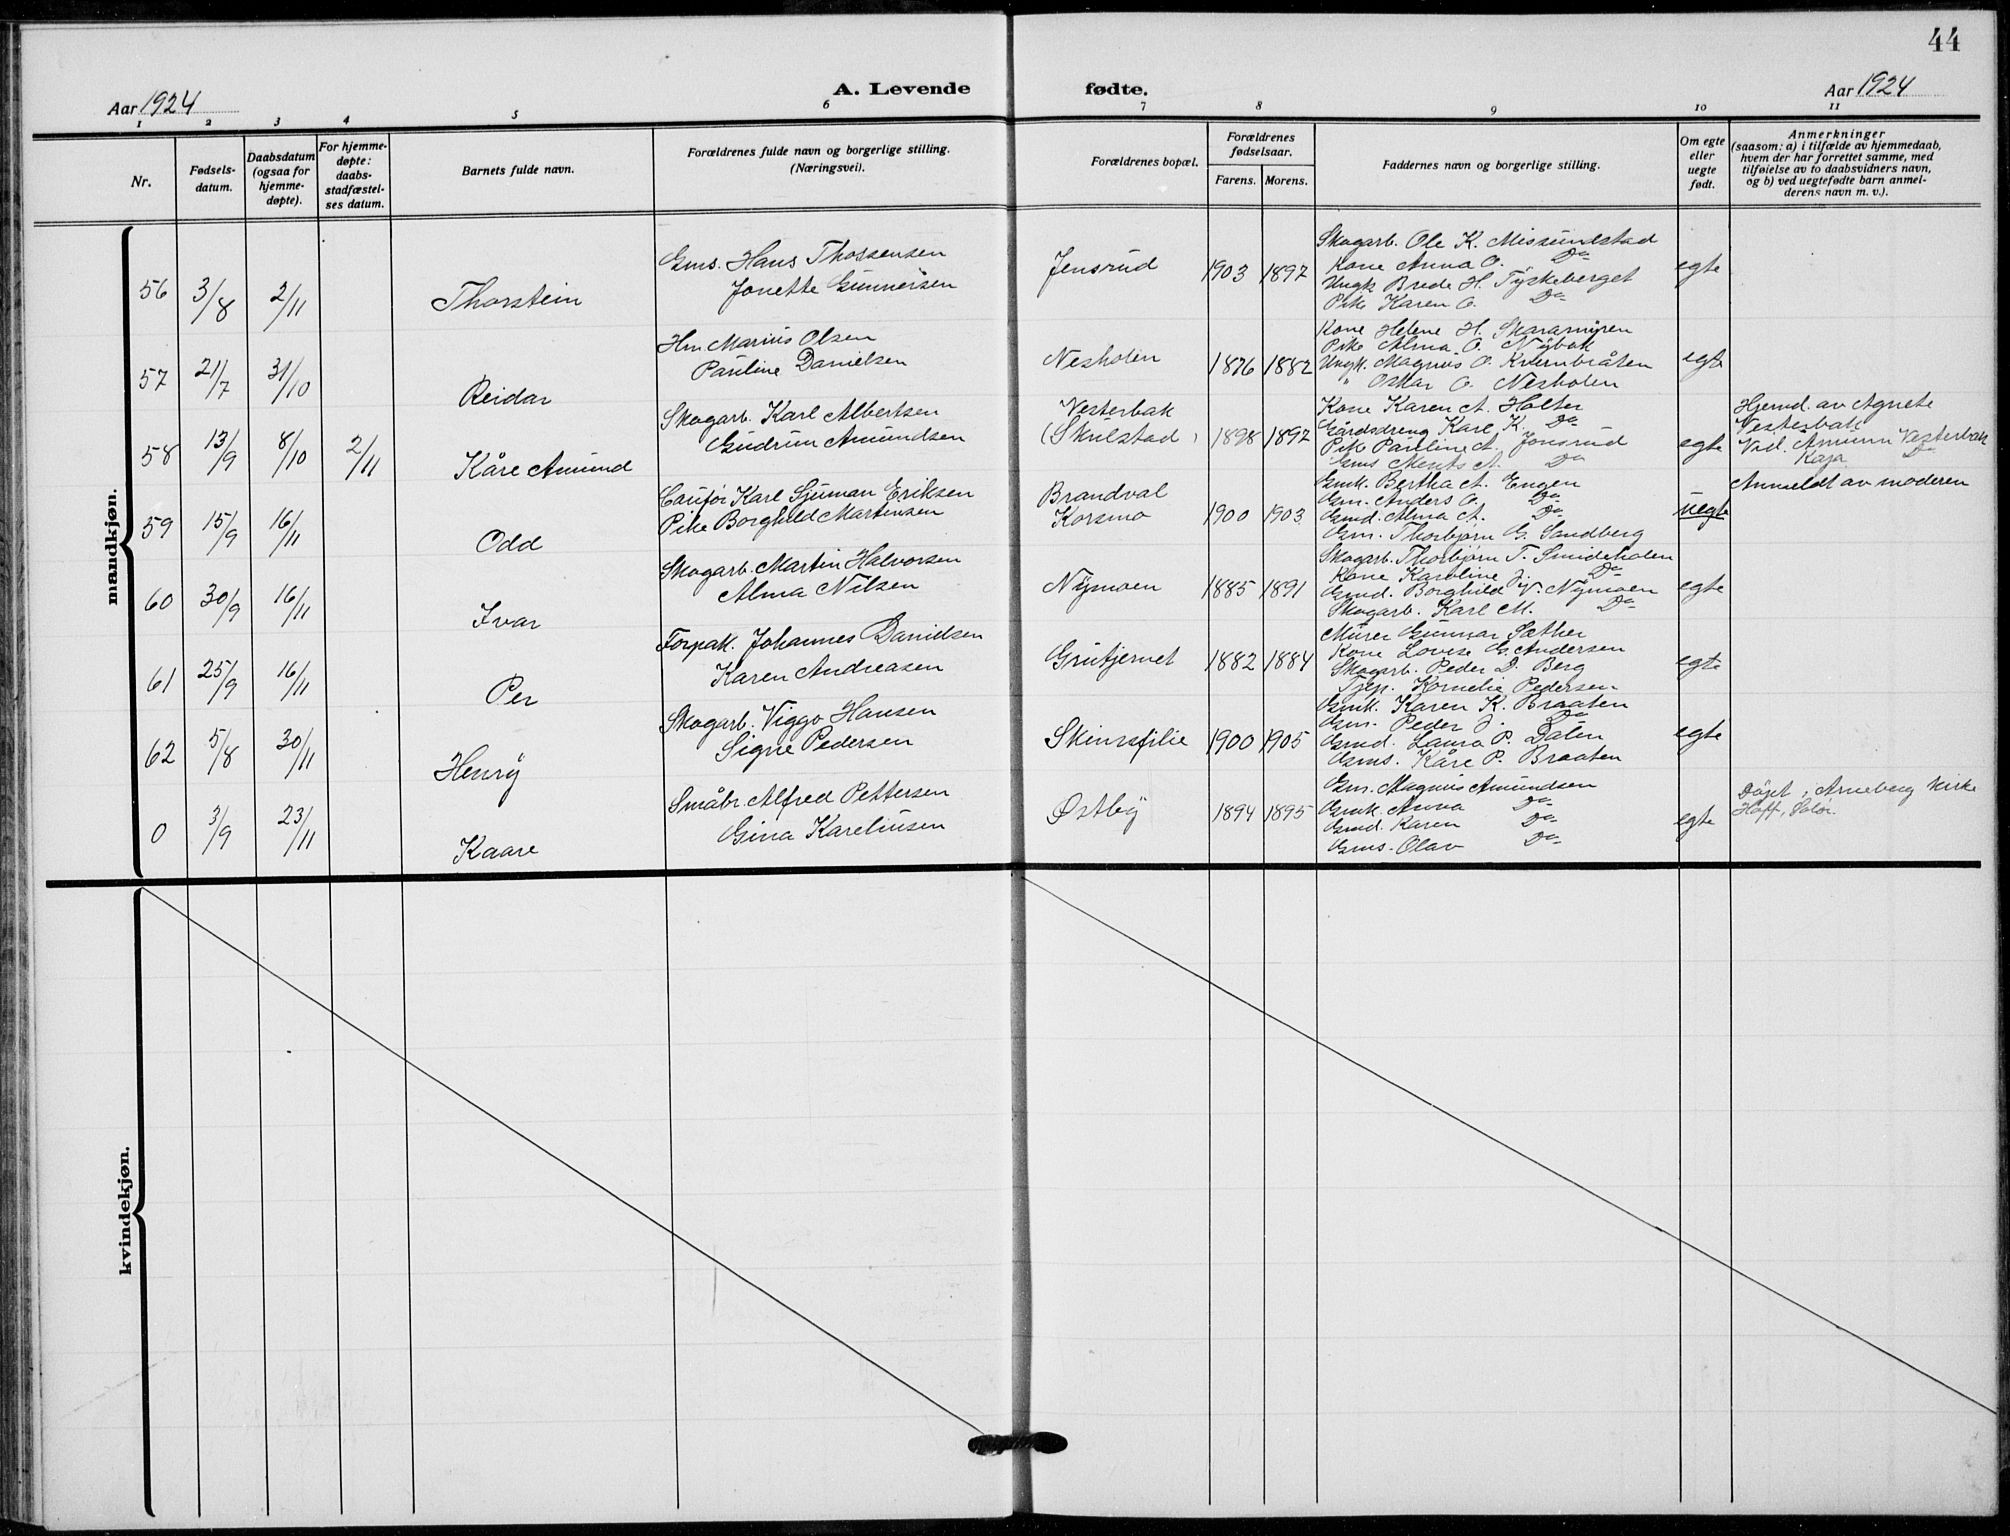 44
Aar 1924
A. Levende fødte.
Aar 1924
1 2 3 4 5 6 7 8 9 10 11
Nr.
Fødsels-
datum.
Daabsdatum
(ogsaa for
hjemme-
døpte).
For hjemme-
døpte:
daabs-
stadfæstel-
ses datum.
Barnets fulde navn.
Forældrenes fulde navn og borgerlige stilling.
(Næringsvei).
Forældrenes bopæl.
Forældrenes
fødselsaar.
Farens. Morens.
Faddernes navn og borgerlige stilling.
Om egte
eller
uegte
født.
Anmerkninger
(saasom: a) i tilfælde av hjemmedaab,
hvem der har forrettet samme, med
tilføielse av to daabsvidners navn,
og b) ved uegtefødte barn anmel-
derens navn m. v.).
mandkjøn.
56 3/8 2/11 Thorstein
Gms. Hans Thossensen
Jonette Gunnersen
Jensrud 1903 1897
Skogarb. Ole K. Missundstad
Kone Anna O. Do
Ungk Brede H. Tyskeberget
Pike Karen O. Do
egte
57 21/7 31/10 Reidar
Hm. Marius Olsen
Pauline Danielsen
Nesholen 1876 1882
Kone Helene H. Skaramyren
Pike Alma O. Nybak
Ungk. Magnus O. Kvernbråten
" Oskar O. Nesholen
egte
58 13/9 8/10 2/11 Kåre Amund
Skogarb. Karl Albertsen
Gudrun Amundsen
Vesterbak
(Skulstad) 1898 1897
Kone Karen A. Holter
Gårdsdreng Karl K. Do
Pike Pauline A. Jonsrud
Gms Ments A. Do
egte
Hjemd. av Agnete
Vesterbak
Vid. Amunn Vesterbak
Kaja Do
59 15/9 16/11 Odd
Caufør Karl Sjuman Eriksen
Pike Borghild Martinsen
Brandval
Korsmo 1900 1903
Gmk. Bertha A. Engen
Gm. Anders O. Do
Gmd. Alma A. Do
Gm. Thorbjørn G. Sandberg
uegte
Anmeldt av moderen
60 30/9 16/11 Ivar
Skogarb. Martin Halvorsen
Alma Nilsen
Nymoen 1885 1891
Skogarb. Thorbjørn T. Smideholen
Kone Karoline J. Do
Gmd. Borghild V. Nymoen
Skogarb. Karl M. Do
egte
61 25/9 16/11 Per
Forpak. Johannes Danielsen
Karen Andreasen
Grutjernet 1882 1884
Murer Gunnar Sæther
Kone Lovise G. Andersen
Skogarb. Peder D. Berg
Tjep. Kornelie Pedersen
egte
62 5/8 30/11 Henry
Skogarb. Viggo Hansen
Signe Pedersen
Skinrafilie 1900 1905
Gmk. Karen K. Braaten
Gm. Peder J. Do
Gmd. Laura P. Dalen
Gms. Kåre P. Braaten
egte
0 3/9 23/11 Kaare
Småbr. Alfred Pettersen
Gina Kareliusen
Østby 1894 1895
Gm. Magnus Amundsen
Gmk. Anna Do
Gmd. Karen Do
Gms. Olav Do
egte
Døpt i Arneberg kirke
Hoff, Solør.
kvindekjøn.